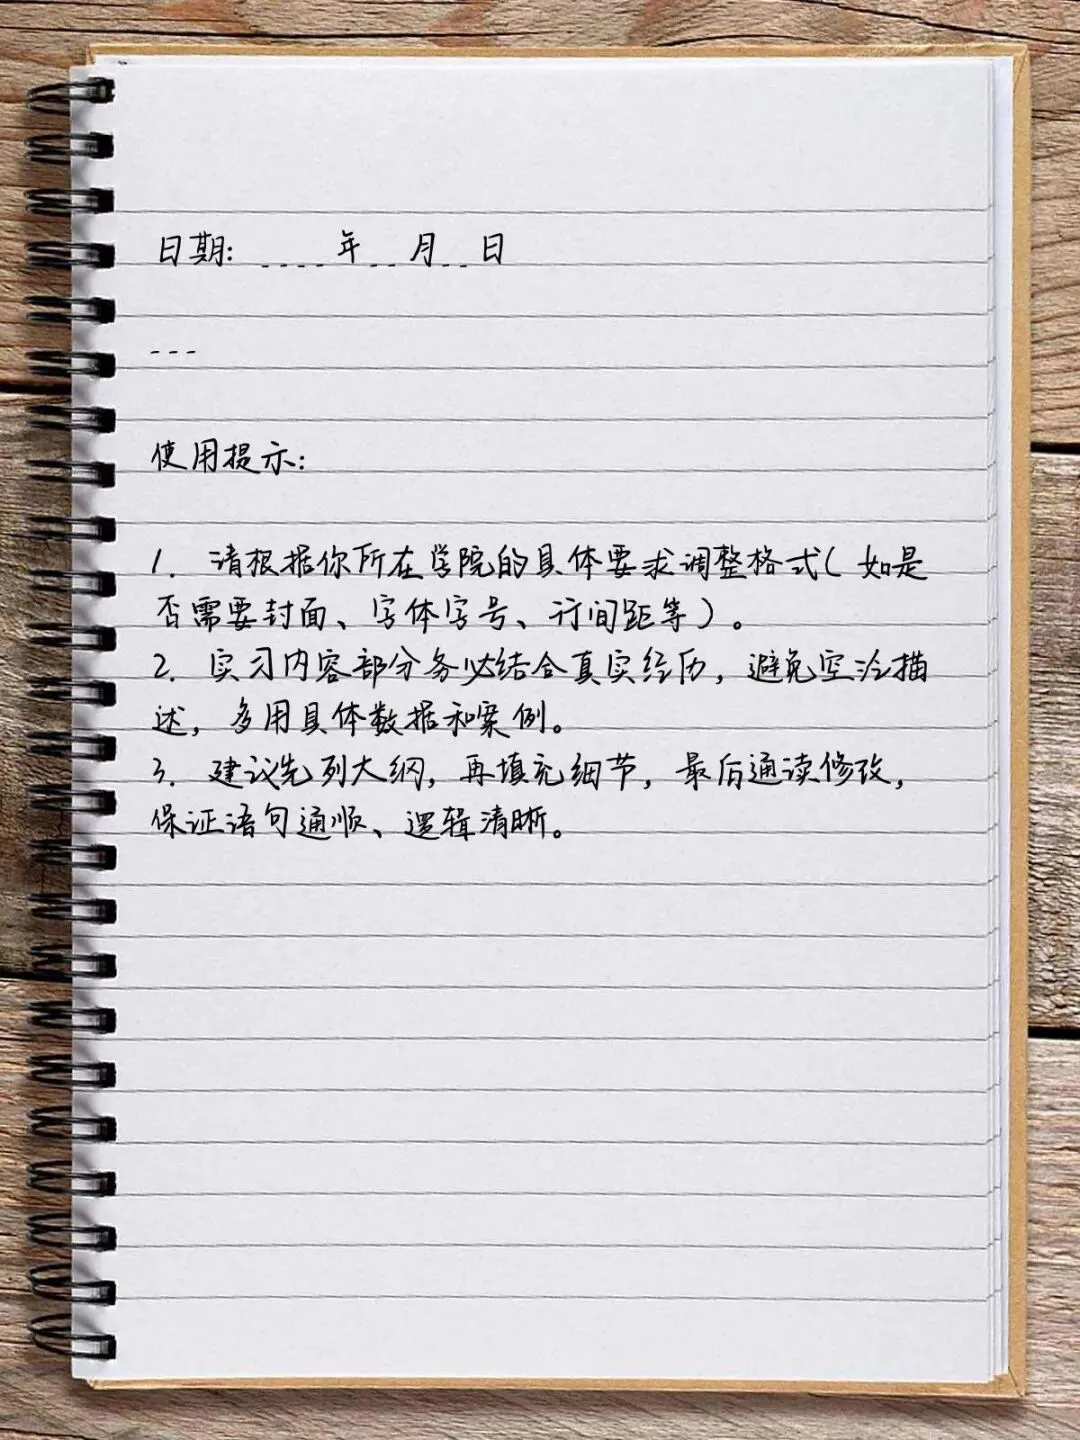 日期: ____年__月__日
---
使用提示:
1. 请根据你所在学院的具体要求调整格式(如是
否需要封面、字体字号、行间距等)。
2. 实习内容部分务必结合真实经历,避免空泛描
述,多用具体数据和案例。
3. 建议先列大纲,再填充细节,最后通读修改,
保证语句通顺、逻辑清晰。